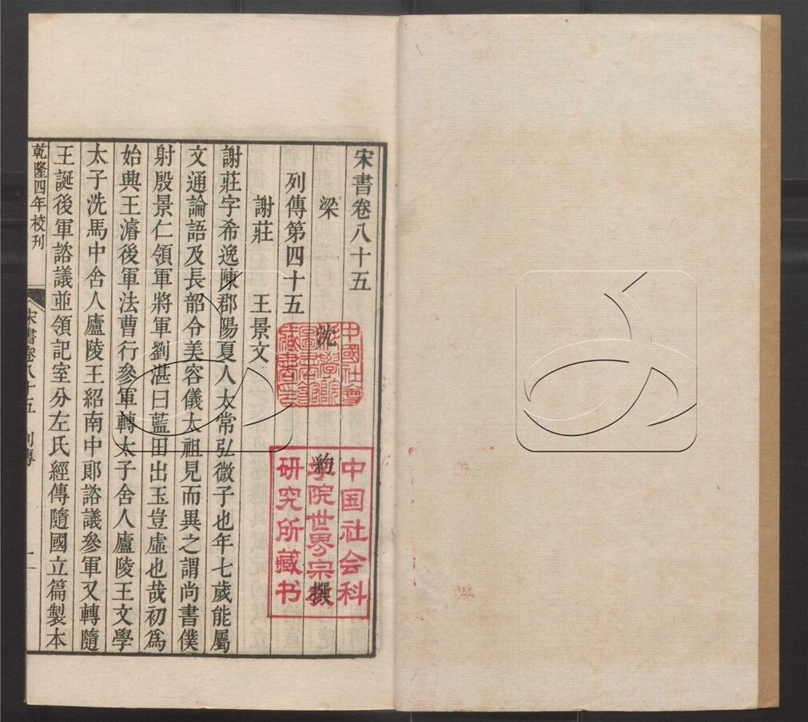 宋書卷八十五
梁 沈 約 撰
列傳第四十五
謝莊 王景文
謝莊字希逸陳郡陽夏人太常弘微子也年七歲能屬
文通論語及長韶令美容儀太祖見而異之謂尚書僕
射殷景仁領軍將軍劉湛曰藍田出玉豈虛也哉初爲
始興王濬後軍法曹行參軍轉太子舍人廬陵王文學
太子洗馬中舍人廬陵王紹南中郎諮議參軍又轉隨
王誕後軍諮議並領記室分左氏經傳隨國立篇製本
乾隆四年校刊
宋書卷八十五 列傳
一
中國社會
科學院
圖書館
藏書印
中国社会科
学院世界宗教
研究所藏书